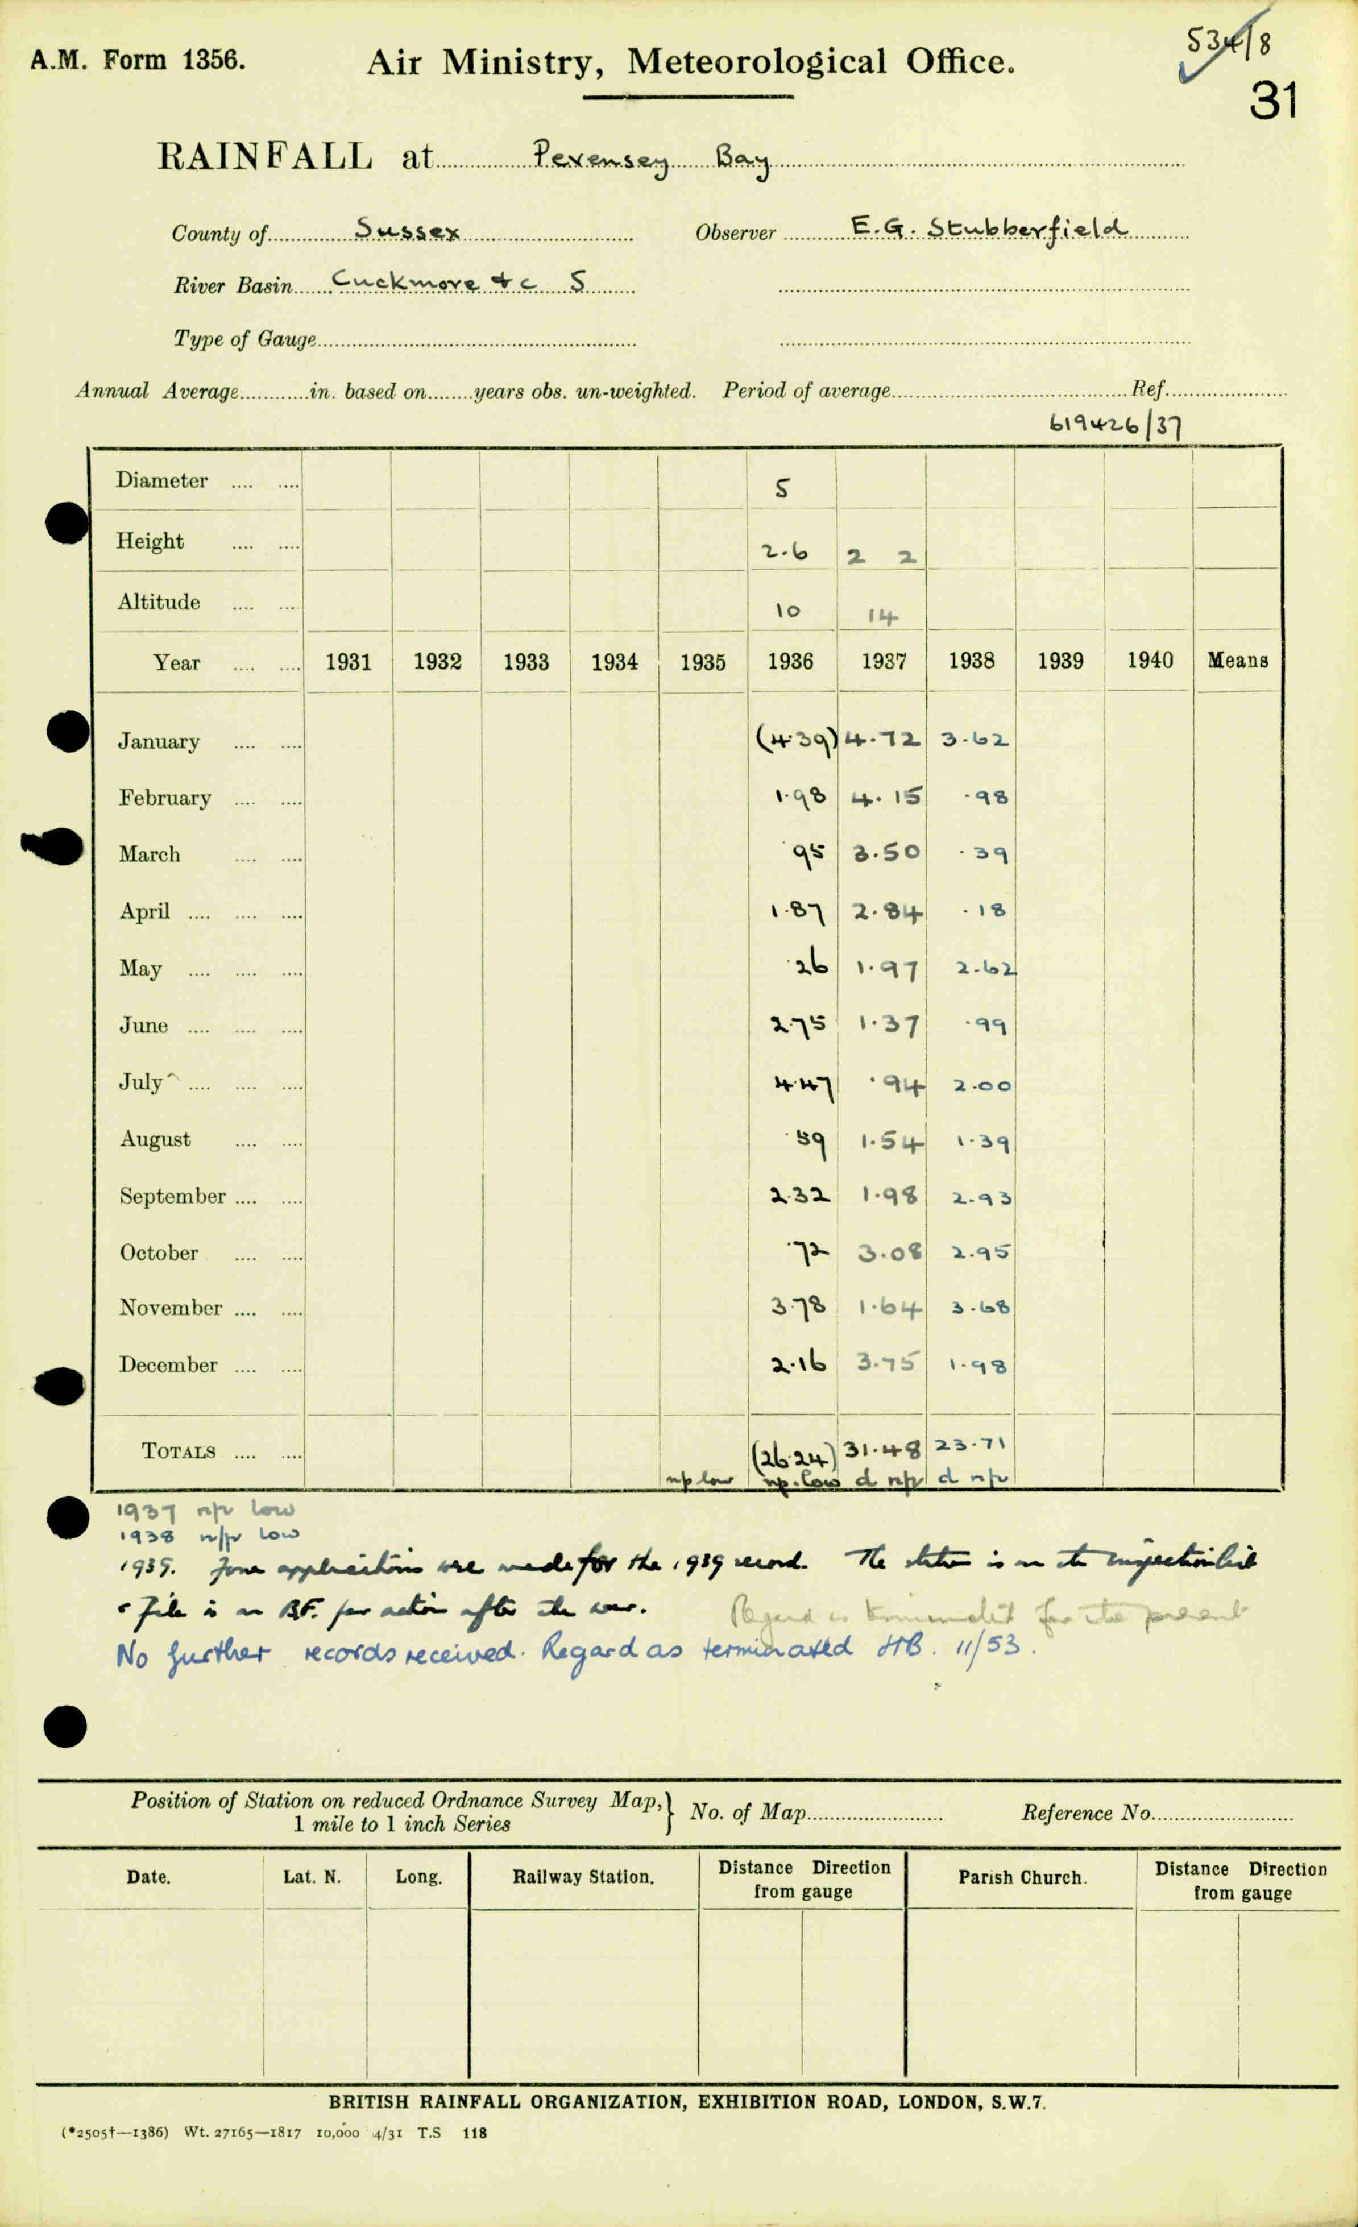 534/8
A.M. Form 1356. Air Ministry, Meteorological Office.
31
RAINFALL at Pevensey Bay
County of Sussex Observer E.G. Stubberfield
River Basin Cuckmore &c S
Type of Gauge
Annual Average in. based on years obs. un-weighted. Period of average Ref.
619426/37
Diameter 5
Height 2.6 2 2
Altitude 10 14
Year 1931 1932 1933 1934 1935 1936 1937 1938 1939 1940 Means
January (4.39) 4.72 3.62
February 1.98 4.15 .98
March .95 3.50 .39
April 1.87 2.84 .18
May .26 1.97 2.62
June 2.75 1.37 .99
July 4.47 .94 2.00
August .59 1.54 1.39
September 2.32 1.98 2.93
October .72 3.08 2.95
November 3.78 1.64 3.68
December 2.16 3.75 1.98
TOTALS (26.24) 31.48 23.71
np low np. low d np d np
1937 np low
1938 np low
1939. Four applications were made for the 1939 record. The station is on the inspection list
& File is on B.F. for action after the war. Regard as terminated for the present
No further records received. Regard as terminated HB. 11/53.
Position of Station on reduced Ordnance Survey Map, } No. of Map Reference No.
1 mile to 1 inch Series
Date. Lat. N. Long. Railway Station. Distance Direction from gauge Parish Church. Distance Direction from gauge
BRITISH RAINFALL ORGANIZATION, EXHIBITION ROAD, LONDON, S.W.7.
(*2505†—1386) Wt. 27165—1817 10,000 4/31 T.S 118